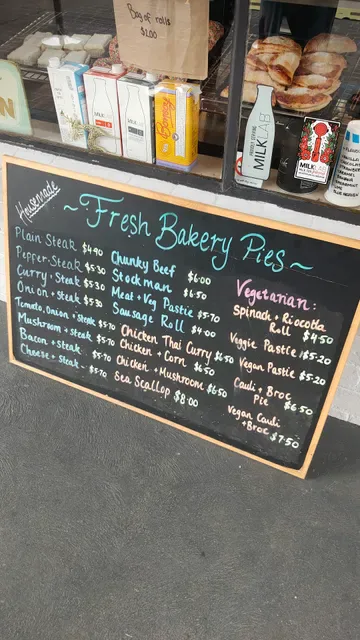 Bag of rolls
$2.00
MILKLAB
MILKLAB
Housemade
~ Fresh Bakery Pies ~
Plain Steak $4.90
Pepper Steak $5.30
Curry + Steak $5.30
Onion + Steak $5.30
Tomato, Onion + Steak $5.70
Mushroom + Steak $5.70
Bacon + Steak $5.70
Cheese + Steak $5.70
Chunky Beef $6.00
Stockman $6.50
Meat + Veg Pastie $5.70
Sausage Roll $4.00
Chicken Thai Curry $6.50
Chicken + Corn $6.50
Chicken + Mushroom $6.50
Sea Scallop $8.00
Vegetarian:
Spinach + Riocotta
Roll $4.50
Veggie Pastie $5.20
Vegan Pastie $5.20
Cauli + Broc
Pie $6.50
Vegan Cauli
+ Broc $7.50